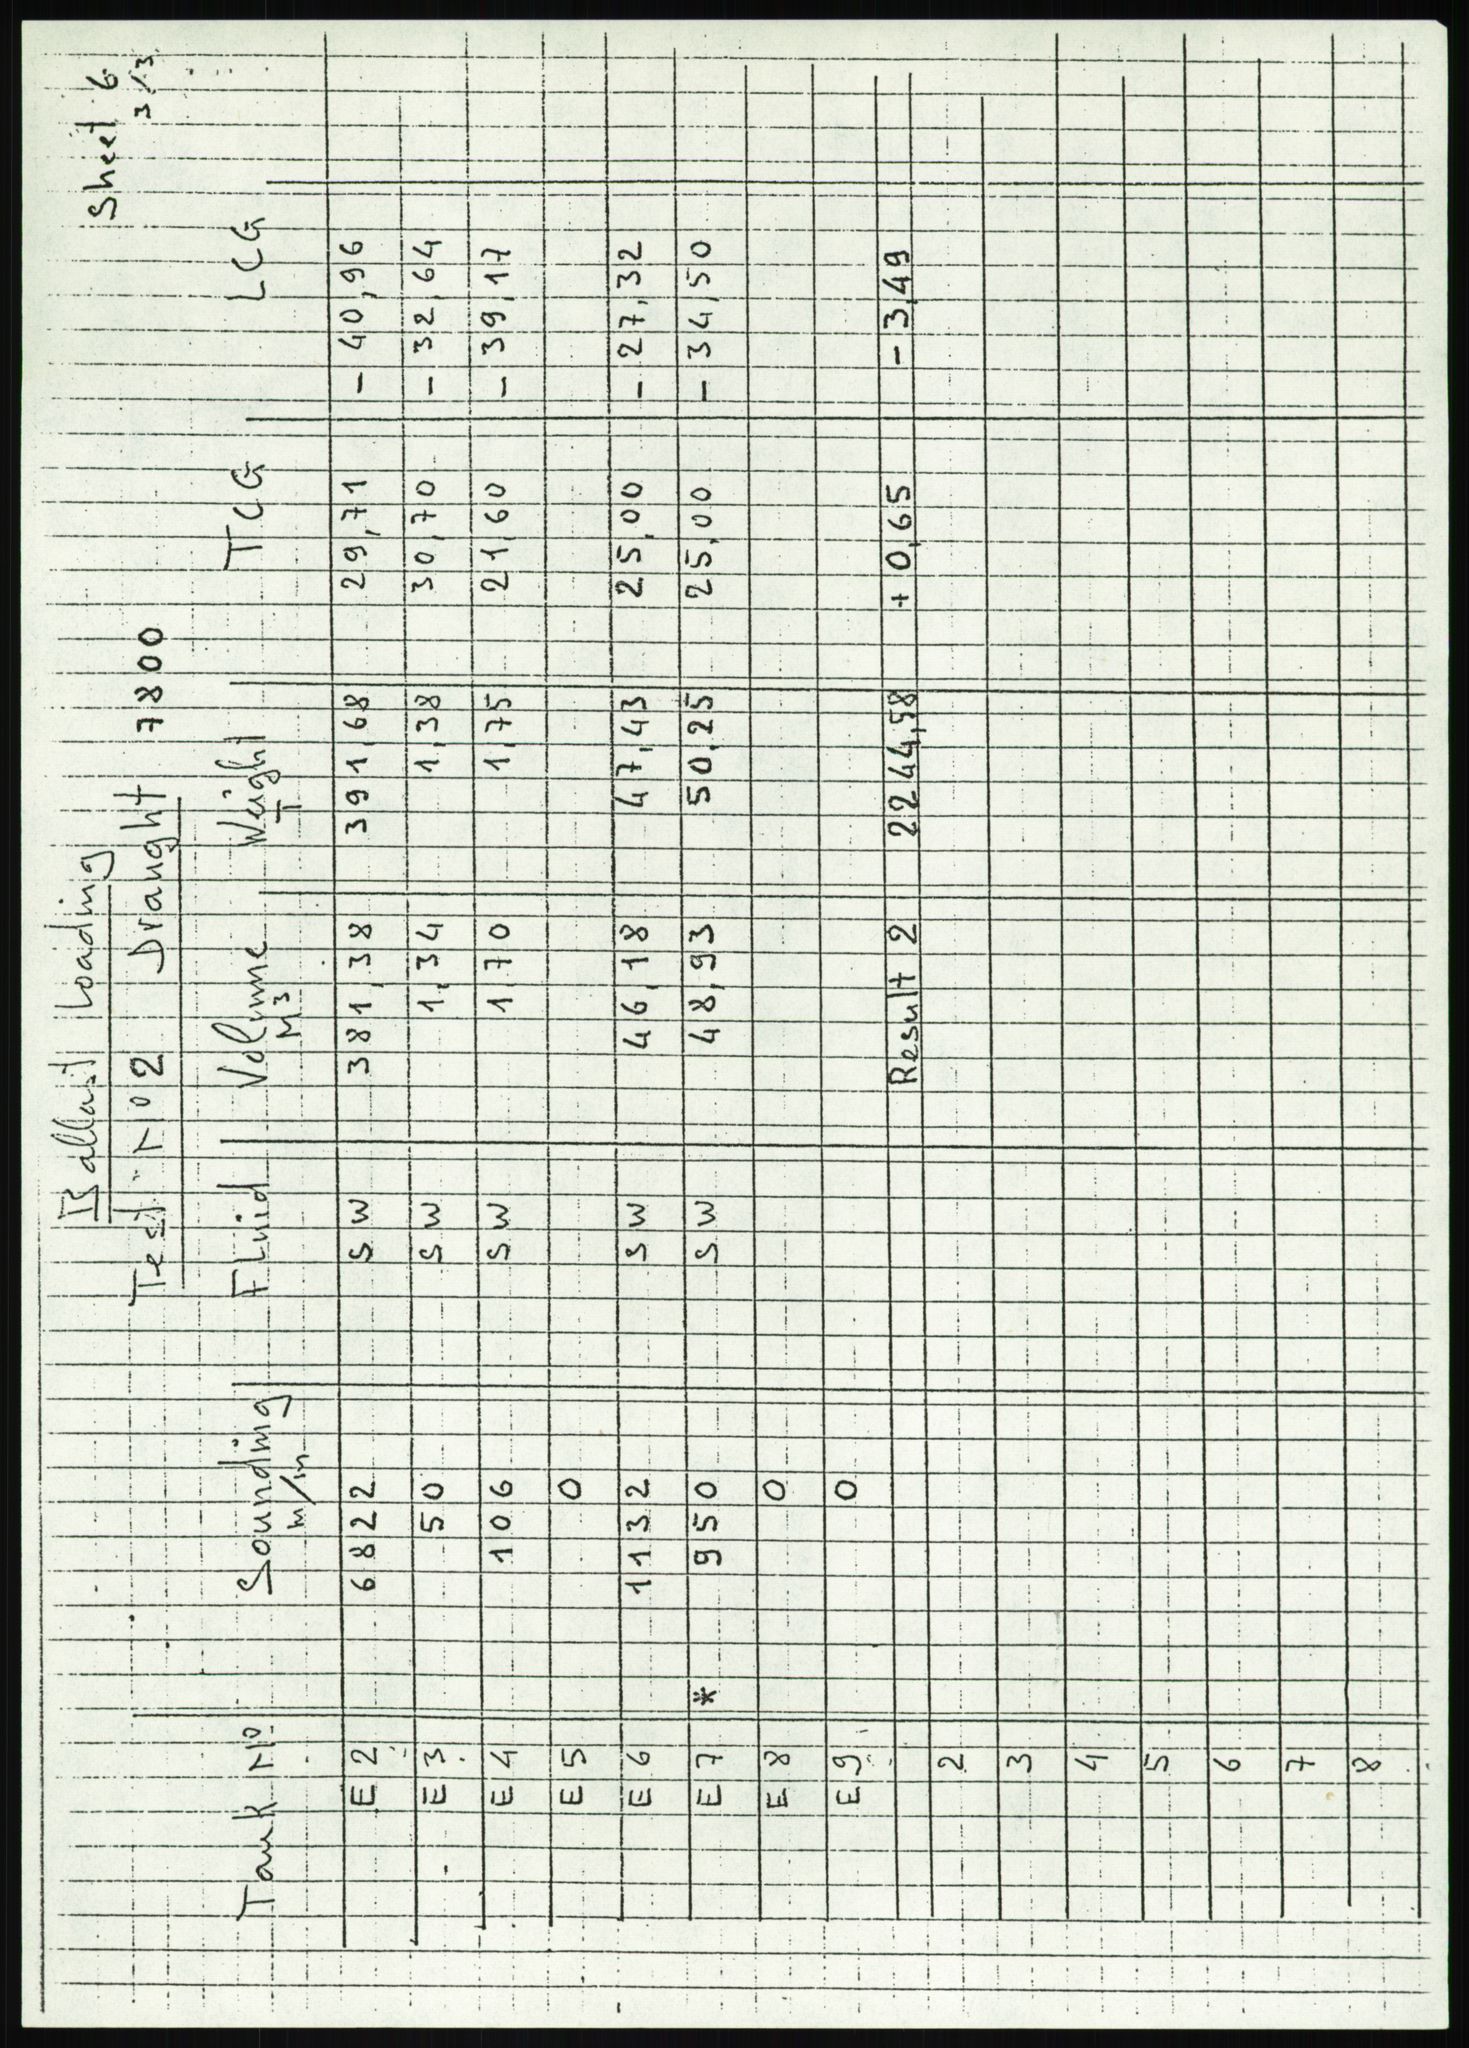 Sheet 6
3/3
Ballast Loading
Test No 2 Draught 7800
Tank No Sounding Fluid Volume Weight TCG LCG
m/m M3 T
E2 6822 SW 381,38 391,68 29,71 -40,96
E3 50 SW 1,34 1,38 30,70 -32,64
E4 106 SW 1,70 1,75 21,60 -39,17
E5 0
E6 1132 SW 46,18 47,43 25,00 -27,32
E7 * 950 SW 48,93 50,25 25,00 -34,50
E8 0
E9 0
Result 2 2244,58 +0,65 -3,49
2
3
4
5
6
7
8